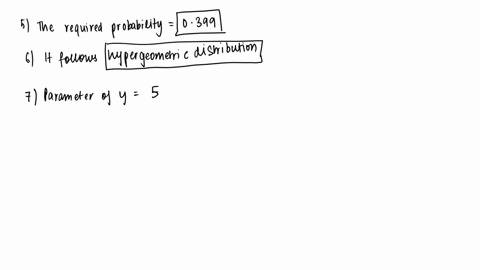 5) The required probability = 0.399
6) It follows hypergeometric distribution
7) Parameter of y = 5